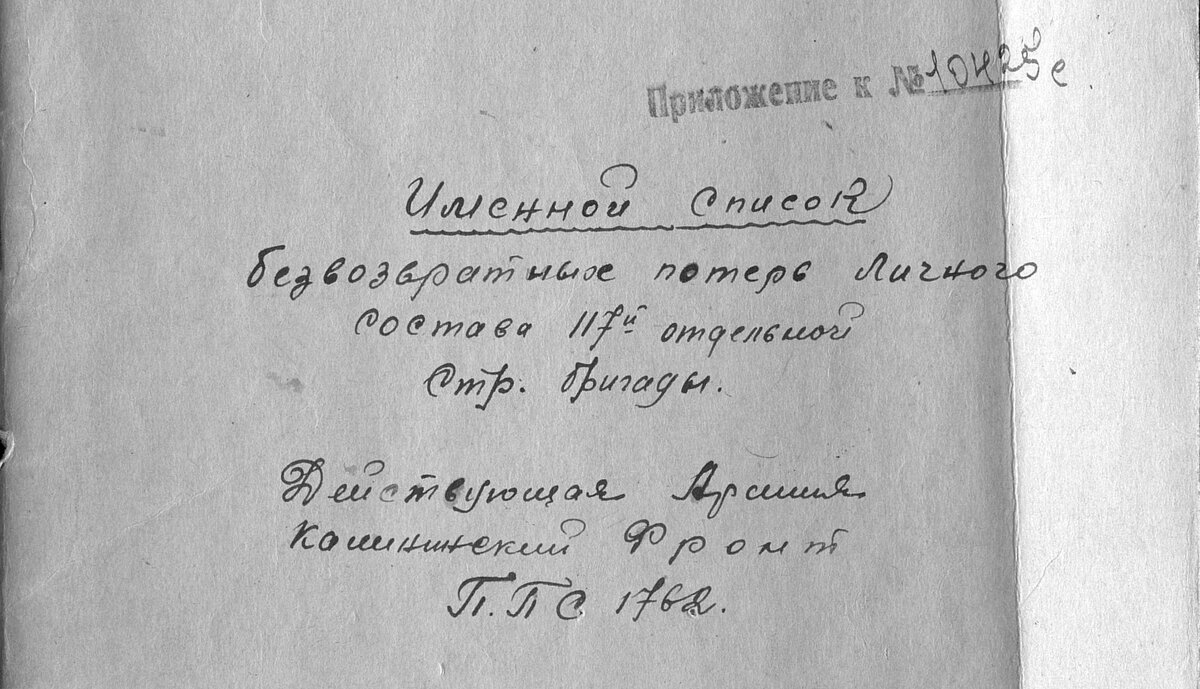 Приложение к № 10425с
Именной список
безвозвратных потерь личного
состава 117й отдельной
Стр. бригады.
Действующая Армия
Калининский Фронт
П.П.С. 1762.